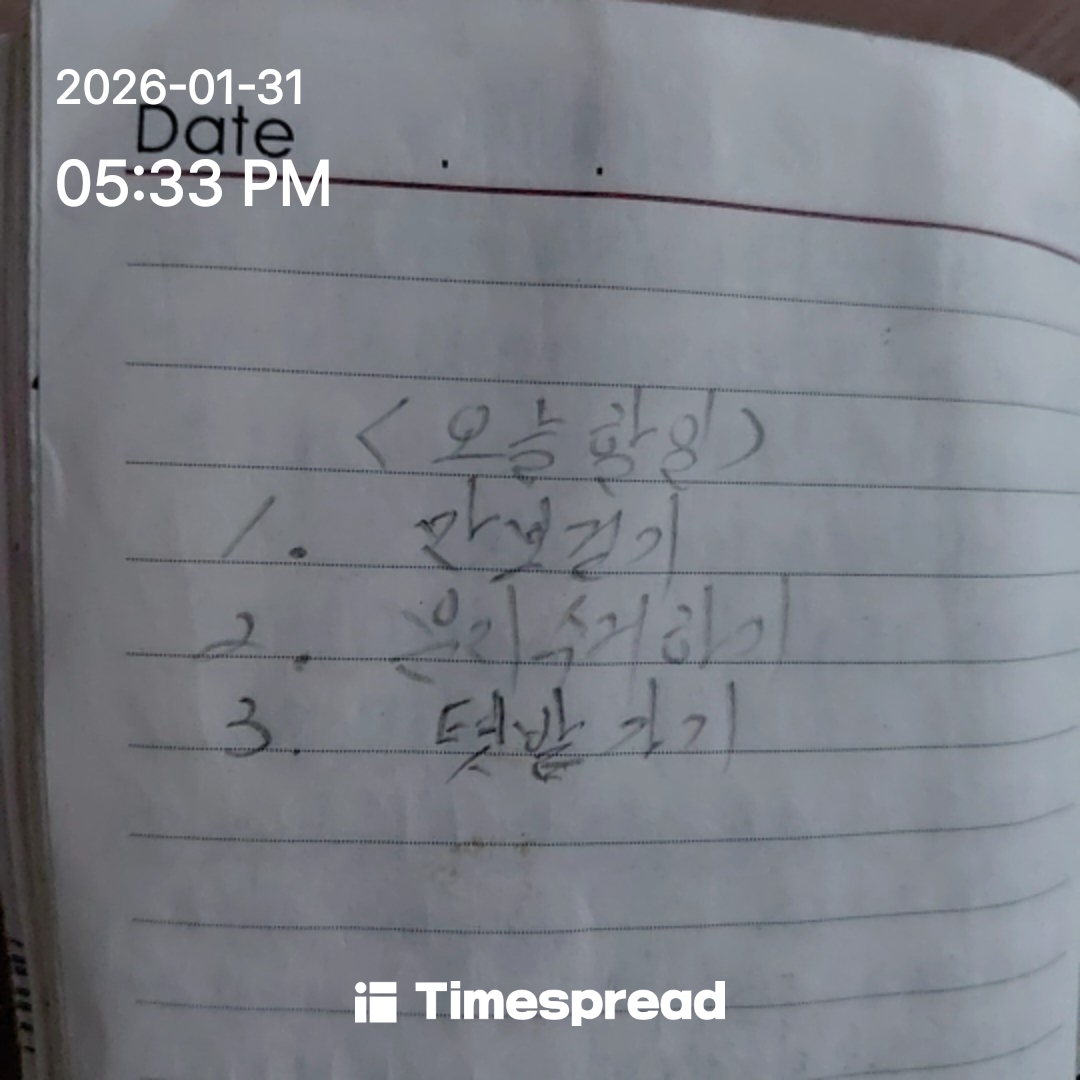 2026-01-31
Date . .
05:33 PM
<오늘 할일>
1. 만보걷기
2. 분리수거하기
3. 텃밭 가기
Timespread